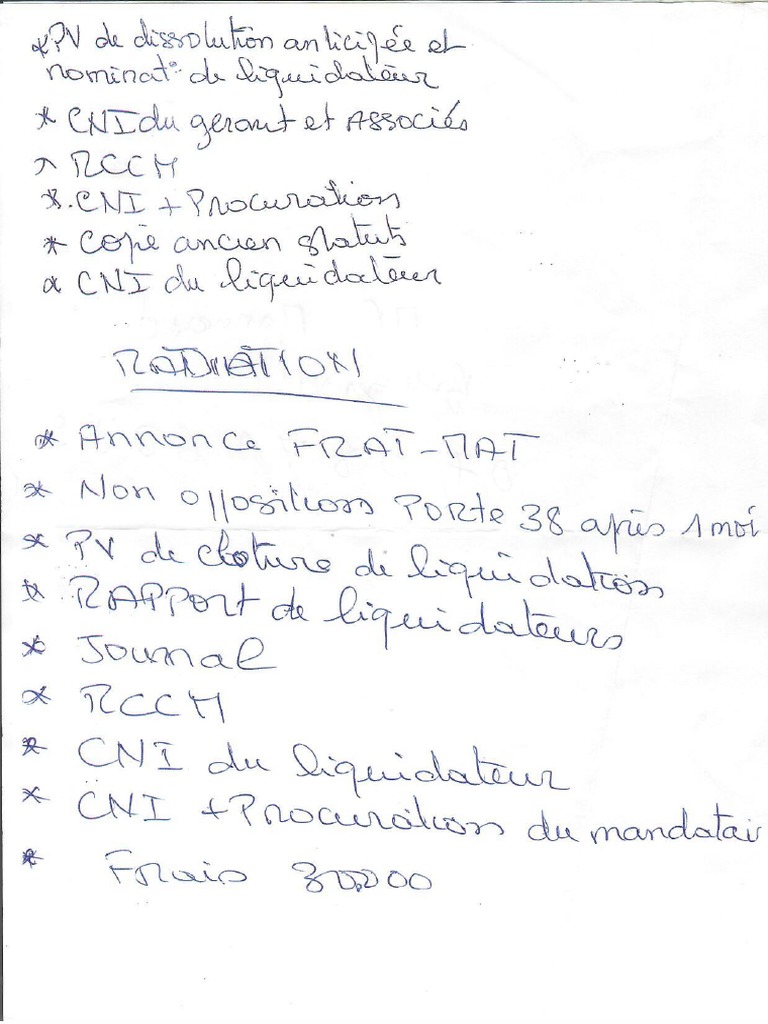 * PV de dissolution anticipée et
nominat° de liquidateur
* CNI du gerant et Associés
* RCCM
* CNI + Procuration
* Copie ancien statuts
* CNI du liquidateur
RADIATION
* Annonce FRAT-MAT
* Non oppositions PORTE 38 après 1 moi
* PV de cloture de liquidation
* RAPPORT de liquidateurs
* Journal
* RCCM
* CNI du liquidateur
* CNI + Procuration du mandatai
* Frais 30.000